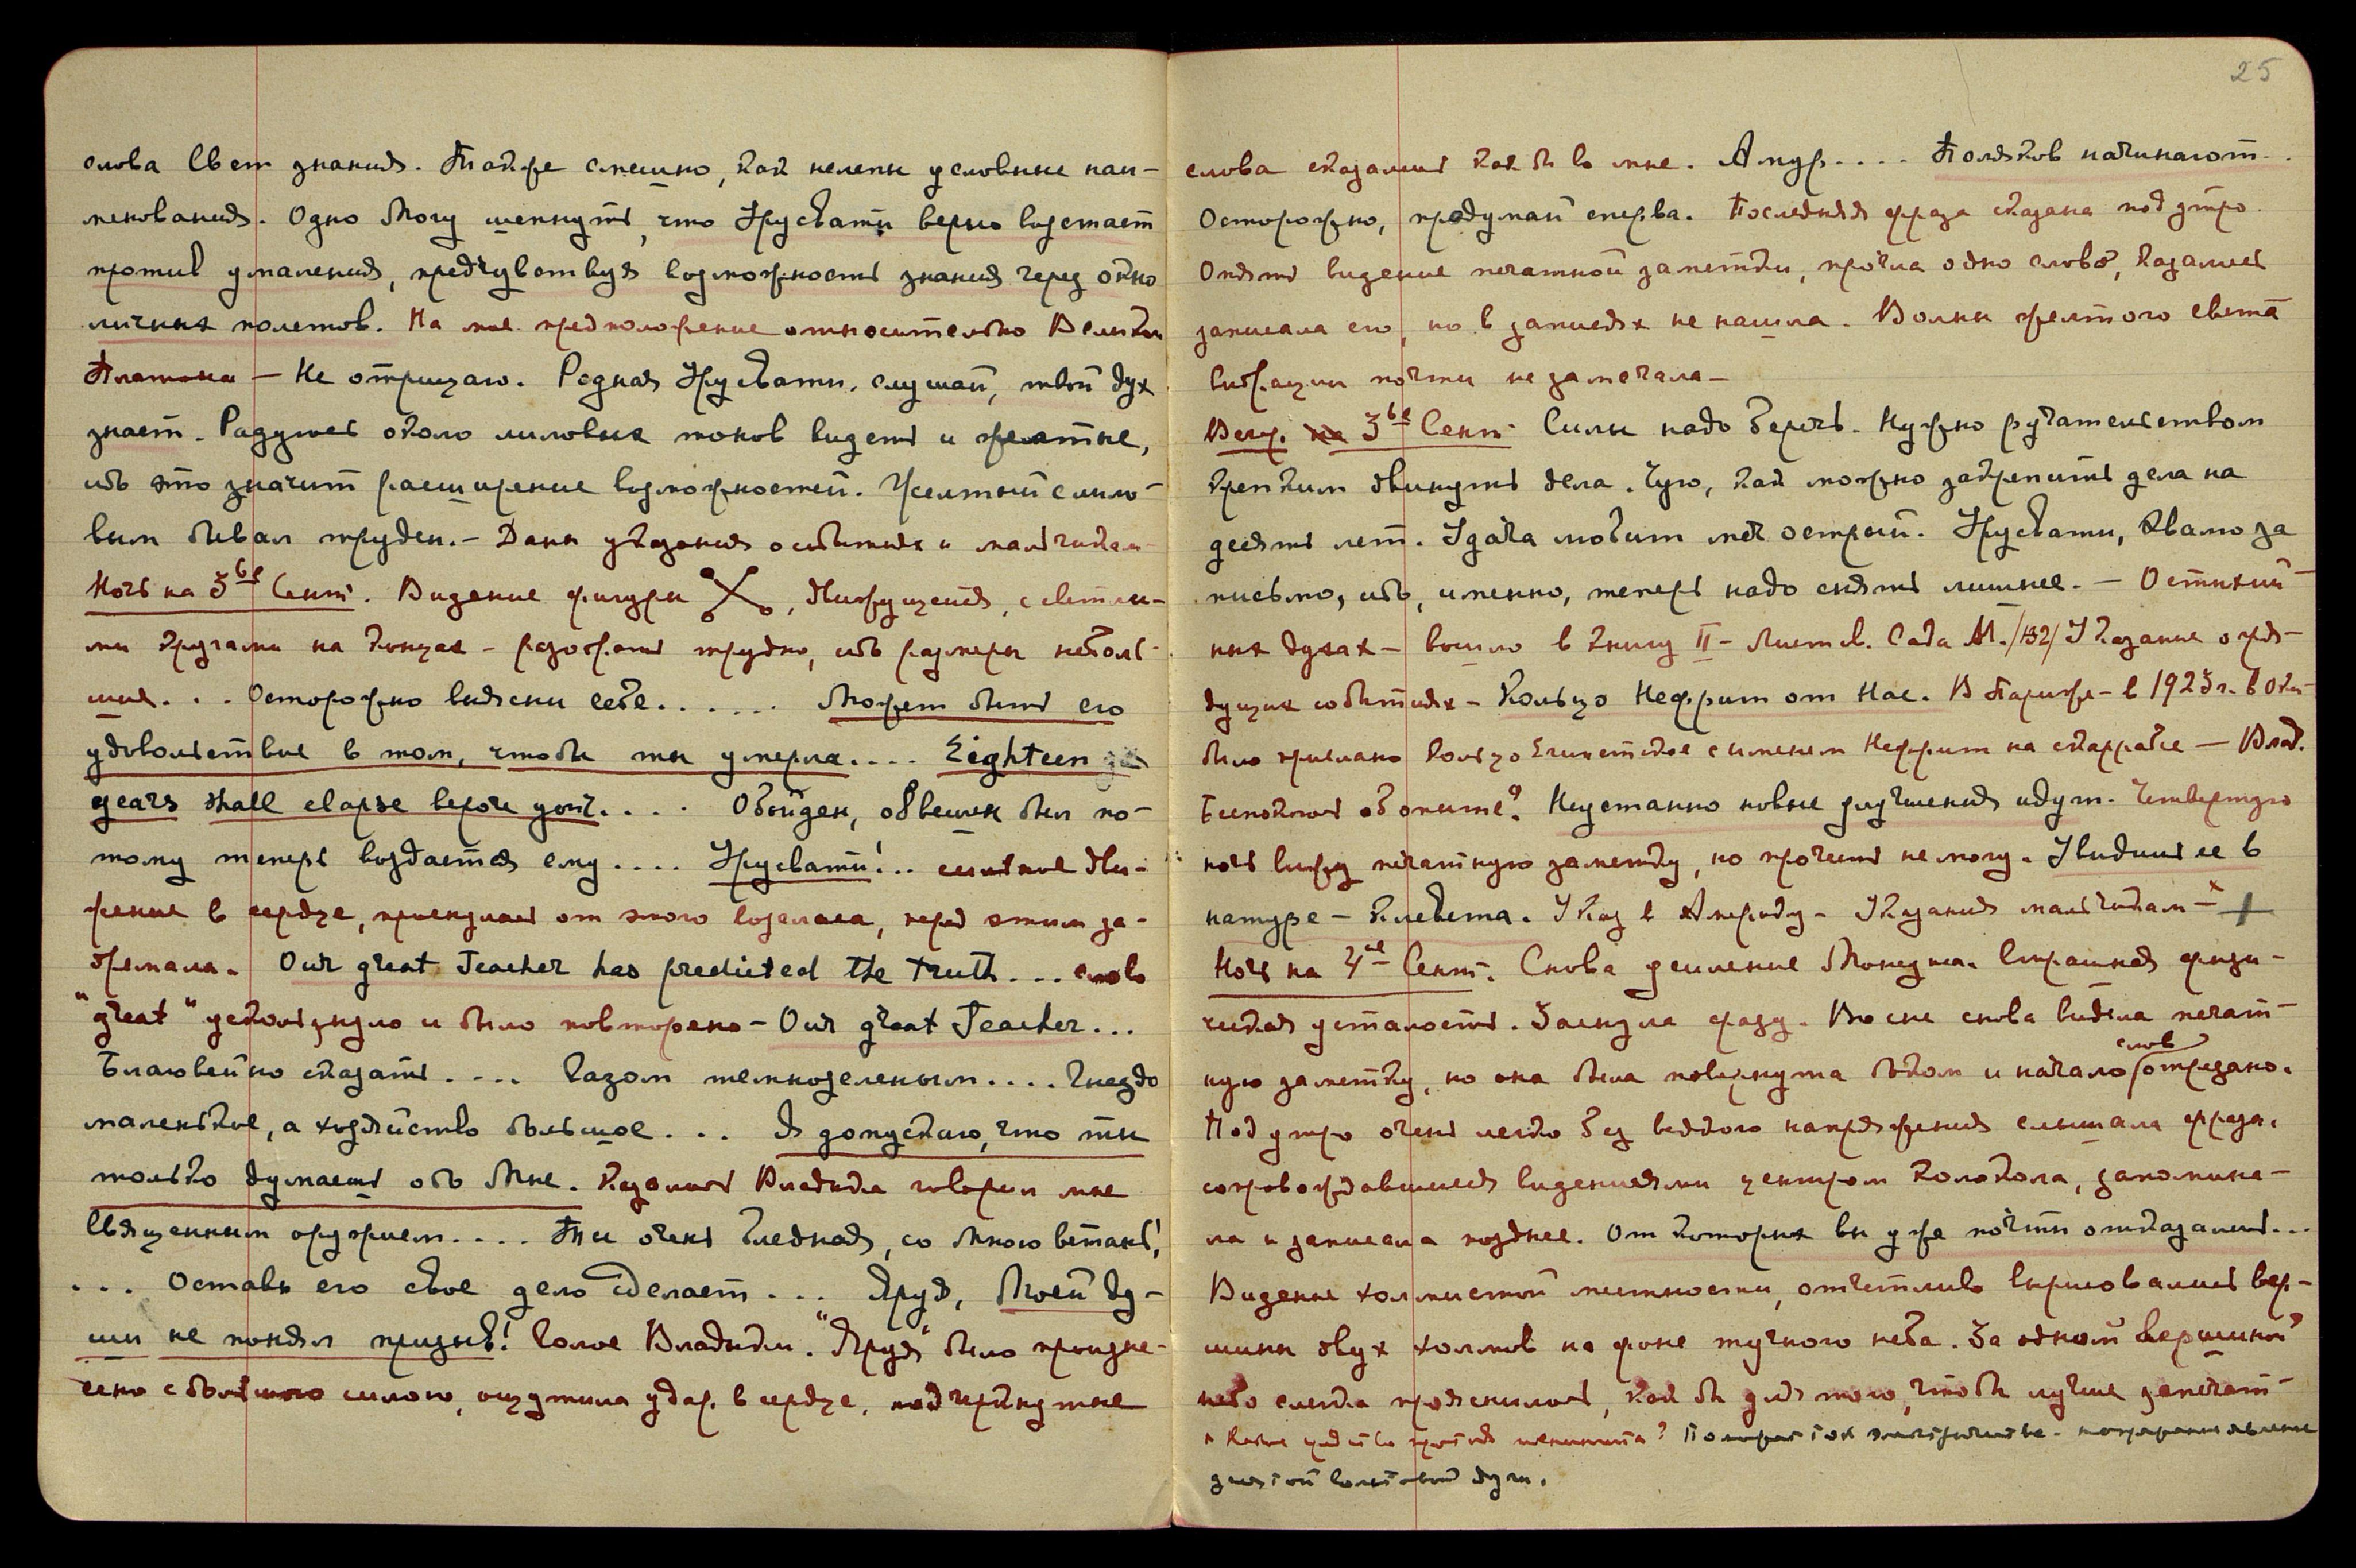 слова Свет знания. Также смешно, как нелепы условные наи-
менования. Одно Могу шепнуть, что Урусвати верно восстает
против умаления, предчувствуя возможность знания через окно
личных полетов. На мое предположение относительно Велик.
Платона — Не отрицаю. Родная Урусвати, слушай, твой дух
знает. Радуюсь около лиловых токов видеть и желтые,
ибо это значит расширение возможностей. Желтый с лило-
вым бывал труден. — Даны указания о событиях и мальчикам
Ночь на 3ье Сент. Видение фигуры, движущейся, с светлы-
ми кругами на концах – разобрать трудно, ибо размеры неболь-
шие... Осторожно выясни себе...... Может быть его
удовольствие в том, чтобы ты умерла.... Eighteen
years shall elapse before your.... Обойден, обвешен был по-
тому теперь воздается ему.... Урусвати!.. сильное дви-
жение в сердце, проснулась от этого возгласа, перед этим за-
дремала. Our great Teacher has predicted the truth... слово
"great" ускользнуло и было повторено – Our great Teacher...
Благовейно сказать.... Газом темнозеленым.... Гнездо
маленькое, а хозяйство большое... Я допускаю, что ты
только думаешь обо Мне. Казалось Владыка говорил мне
Священным оружием.... Ты очень бледная, со Мною встань!
... Оставь его свое дело сделает... Яруя, Моей ду-
ши не понял призыв! Голос Владыки. "Яруя" было произне-
сено с большою силою, ощутила удар в сердце, подчеркнутые
25
слова сказались как бы во мне. Амур.... Поляков начинают..
Осторожно, продумай сперва. Последняя фраза сказана под утро.
Опять видение печатной заметки, прочла одно слово, казалось
записала его, но в записях не нашла. Волны желтого света
вибрации почти не замечала –
Веч. 3ье Сент. Силы надо беречь. Нужно ручательством
крепким двинуть дела. Чую, как можно закрепить дела на
десять лет. Удача любит меч острый. Урусвати, хвалю за
письмо, ибо, именно, теперь надо снять лишнее. — О стихий-
ных духах – вошло в книгу II – Листов. Сада М. /132/ Указание о гря-
дущих событиях – Кольцо Нефрит от Нас. В Париже – в 1923 г. в Окт.
было прислано кольцо Египетское с именем Нефрит на скаррабее — Влад.
беспокоились об опыте? Неустанно новые улучшения идут. Четвертую
ночь вижу печатную заметку, но прочесть не могу. Увидишь ее в
натуре – Клевета. Указ в Америку – Указания мальчикам – x +
Ночь на 4ое Сент. Снова усиление Монсуна. Страшная физи-
ческая усталость. Заснула сразу. Во сне снова видела печат-
слов
ную заметку, но она была повернута боком и начало отрезано.
Под утро очень легко без всякого напряжения слышала фразы,
сопровождавшиеся видениями центром колокола, запомни-
ла и записала позднее. От которых вы уже почти отказались...
Видение холмистой местности, отчетливо вырисовались вер-
шины двух холмов на фоне тучного неба. За одной вершиной
небо слегка прояснилось, как бы для того, чтобы лучше запечат-
x Какие против менингита? электричества –
вольтовой дуги.